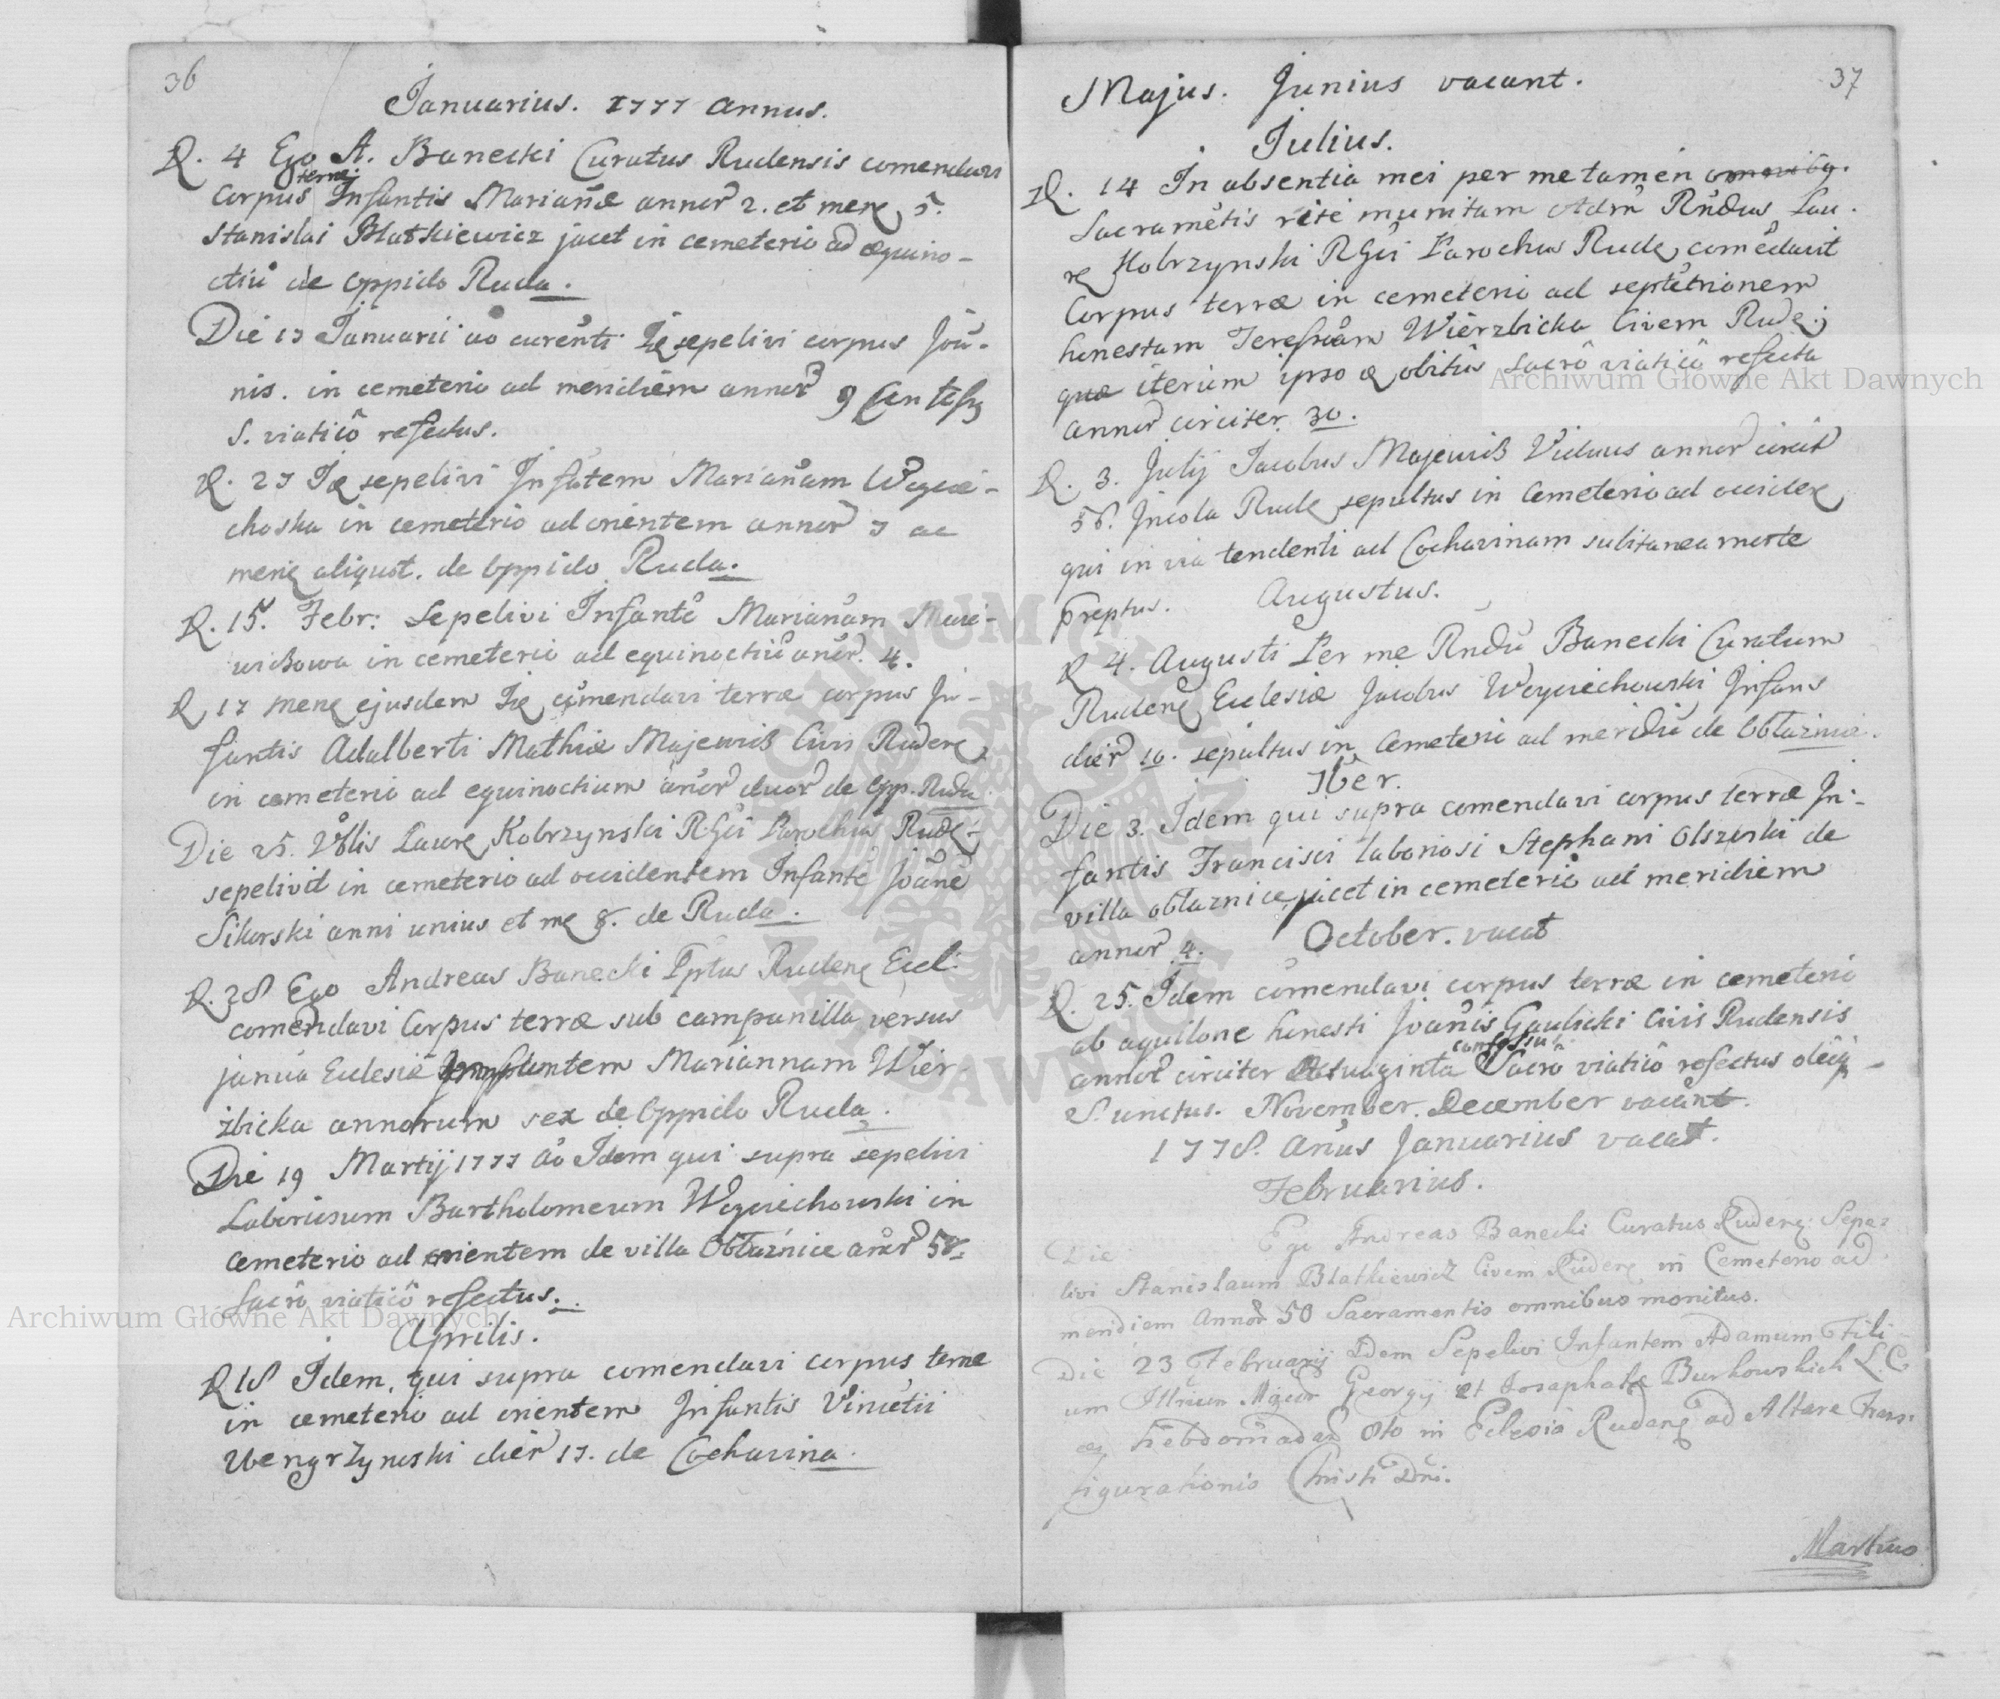 36
Januarius. 1777 annus.
D. 4 Ego A. Banecki Curatus Rudensis comendavi
terræ
Corpus Infantis Mariañæ annor 2. et mens 5.
Stanislai Blatkiewicz jacet in cemeterio ad æquino-
ctiũ de Oppido Ruda.
Die 13 Januarii ao curenti sepelivi corpus Joũ-
nis. in cemeterio ad meridiem annor 9
S. viaticô refectus.
D. 27 sepelivi Infãtem Marianam Woycie-
choska in cemeterio ad orientem annor 7 ac
mens aliquot. de Oppido Ruda.
D. 15. Febr: Sepelivi Infantẽ Marianam
in cemeterio ad equinoctiũ anor. 4.
D 17 mens ejusdem comendavi terræ corpus In-
fantis Adalberti Mathiæ Majewicz Civis Rudens
in cemeterio ad equinoctium anor duor de Opp. Ruda
Die 25. Kobrzynski Parochus Rude:
sepelivit in cemeterio ad occidentem Infantẽ Joãnẽ
Sikorski anni unius et me 8. de Ruda.
D. 28 Ego Andreas Banecki Rudens Eccl:
comendavi Corpus terræ sub campanilla versus
janua Eclesiæ Mariannam Wier-
zbicka annorum sex de Oppido Ruda.
Die 19 Martij 1777 ao Idem qui supra sepelivi
Laboriosum Bartholomeum Woyciechowski in
Cemeterio ad orientem de villa Obłaznice anor 58.
Sacrô viaticô refectus.
Aprilis.
D 18 Idem, qui supra comendavi corpus terræ
in cemeterio ad orientem Infantis Vincẽtii
Wengrzynoski dier 17. de Cocharina.
37
Majus. Junius vacant.
Julius.
D. 14 In absentia mei per me tamen
Sacramẽtis rite munitam Adm Rndus Lau.
re Kobrzynski Parochus Rude comẽdavit
Corpus terræ in cemeterio ad septẽtrionem
honestam Wierzbicka Civem Rude;
quæ iterum ipso obitus sacrô viaticô refecta
annor circiter 30.
D. 3. Julij Jacobus Majewicz Viduus annor circit
56. Incola Rude sepultus in Cemeterio ad occidẽ
qui in via tendenti ad Cocharinam subitanea morte
preptus.
Augustus.
D 4. Augusti Per me Rndũ Banecki Curatum
Rudens Eclesiæ Jacobus Woyciechowski Infans
dier 10. sepultus in Cemeterio ad meridiẽ de Obłaznice.
7ber.
Die 3. Idem qui supra comendavi corpus terræ In-
fantis Francisci laboriosi Stephani Olszeski de
villa obłaznice, jacet in cemeterio ad meridiem
annor 4.
October. vacat
D. 25. Idem comendavi corpus terræ in cemeterio
ab aquilone honesti Joãnis Gaulicki Civis Rudensis
annor circiter Sacrô viaticô refectus oleoq-
S. unctus. November. December vacant.
1778. anus Januarius vacat.
Februarius.
Die Ego Andreas Banecki Curatus Rudens Sepe-
livi Stanislaum Blatkiewicz Civem Rudens in Cemeterio ad
meridiem Annor 50 Sacramentis omnibus monitus.
Die 23 Februarij Idem Sepelivi Infantem Adamum Fili-
um Georgij et Josaphatæ Burkowskich
hebdomadar Octo in Eclesia Rudens ad Altare Trans-
figurationis Christi Dni.
Martius
Archiwum Główne Akt Dawnych
Archiwum Główne Akt Dawnych
ARCHIWUM GŁÓWNE AKT DAWNYCH